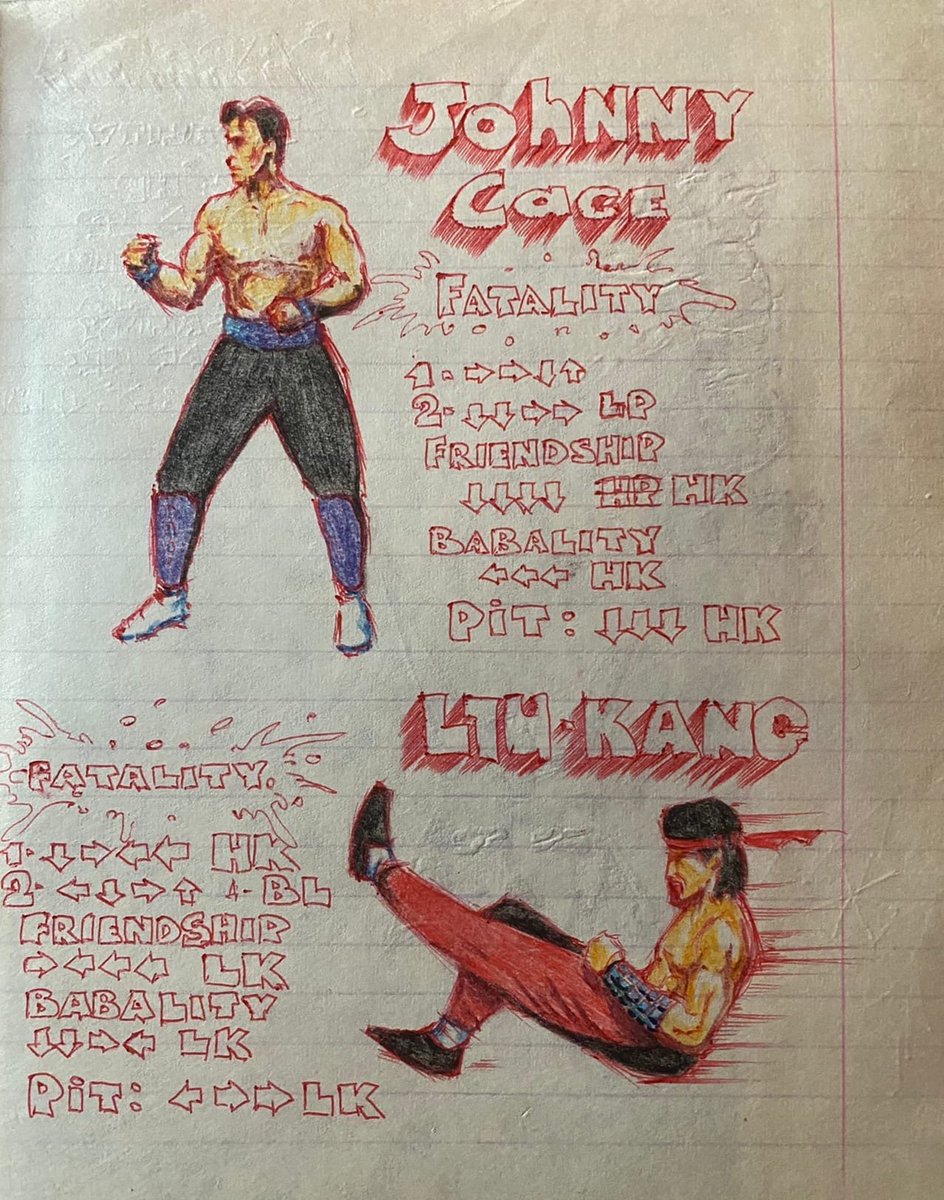 Johnny
Cage
Fatality
1. ⇨⇨⇩⇧
2. ⇩⇩⇨⇨ LP
Friendship
⇩⇩⇩⇩ HP HK
Babality
⇦⇦⇦ HK
Pit: ⇩⇩⇩ HK
LIU·KANG
Fatality.
1. ⇩⇨⇦⇦ HK
2. ⇦⇩⇨⇧ A·BL
Friendship
⇨⇦⇦⇦ LK
Babality
⇩⇩⇨⇦ LK
Pit: ⇦⇨⇨ LK